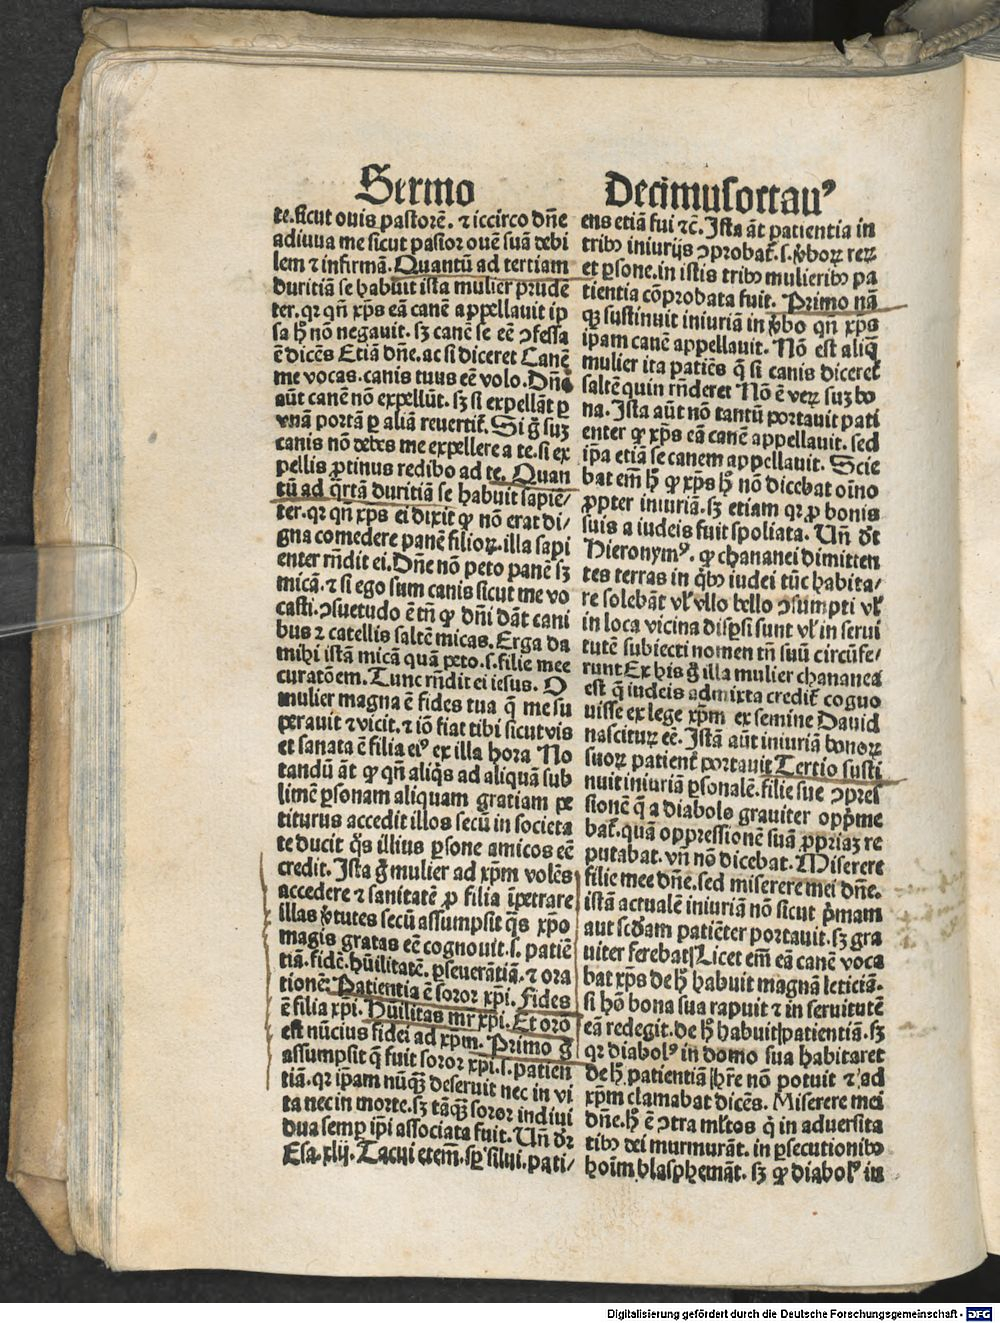 Sermo
te. sicut ovis pastorē. ⁊ iccirco dn̄e
adiuua me sicut pastor ouē suā debi
lem ⁊ infirmā. Quantū ad tertiam
duritiā se habuit ista mulier prudē
ter. qꝛ qn̄ xp̄s eā canē appellauit ip
sa hͦ nō negauit. sꝫ canē se eē ↄfessa
ē dicēs Etiā dn̄e. ac si diceret Canē
me vocas. canis tuus eē volo. Dn̄i
aūt canē nō expellūt. sꝫ si expellāt ꝑ
vnā portā ꝑ aliā reuertit᷑. Si g̊ suꝫ
canis nō debes me expellere a te. si ex
pellis ꝓtinus redibo ad te. Quan
tū ad q̈rtā duritiā se habuit sapiē⸗
ter. qꝛ qn̄ xp̄s ei dixit ꝙ nō erat di⸗
gna comedere panē filioꝝ. illa sapi
enter rn̄dit ei. Dn̄e nō peto panē sꝫ
micā. ⁊ si ego sum canis sicut me vo
casti. ↄsuetudo ē tn̄ ꝙ dn̄i dāt cani
bus ⁊ catellis saltē micas. Erga da
mihi istā micā quā peto. s. filie mee
curatōem. Tunc rn̄dit ei iesus. O
mulier magna ē fides tua q̄ me su
perauit ⁊ vicit. ⁊ iō fiat tibi sicut vis
et sanata ē filia eiꝰ ex illa hora No
tandū āt ꝙ qn̄ aliq̇s ad aliquā sub
limē ꝑsonam aliquam gratiam pe
titurus accedit illos secū in societa
te ducit q̇s illius ꝑsone amicos eē
credit. Ista g̊ mulier ad xp̄m volēs
accedere ⁊ sanitatē ꝓ filia īpetrare
illas v̓tutes secū assumpsit q̇s xp̄o
magis gratas eē cognouit. s. patiē
tiā. fidē. hūilitatē. ꝑseuerātiā. ⁊ ora
tionē. Patientia ē soror xp̄i. Fides
ē filia xp̄i. Hūilitas mr̄ xp̄i. Et orō
est nūcius fidei ad xp̄m. Primo g̊
assumpsit q̄ fuit soror xp̄i. s. patien
tiā. qꝛ ip̄am nūq̄ꝫ deseruit nec in vi
ta nec in morte. sꝫ tāq̄ꝫ soror indiui
dua semꝑ ip̄i associata fuit. Un̄ dr̄
Esa. xlij. Tacui etem̄. sꝑ silui. pati⸗
Decimusoctauꝰ
ens etiā fui ⁊c̄. Ista āt patientia in
tribꝰ iniurijs ↄprobat᷑. s. v̓boꝝ reꝝ
et ꝑsone. in istis tribꝰ mulieribꝰ pa
tientia cōprobata fuit. Primo nā
qꝫ sustinuit iniuriā in v̓bo qn̄ xp̄s
ipam canē appellauit. Nō est aliq̄
mulier ita patiēs q̄ si canis diceret᷑
saltē quin rn̄deret Nō ē veꝝ suꝫ bo
na. Ista aūt nō tantū portauit pati
enter ꝙ xp̄s eā canē appellauit. sed
ip̄a etiā se canem appellauit. Scie
bat em̄ hͦ ꝙ xp̄s hͦ nō dicebat oīno
ꝓpter iniuriā. sꝫ etiam qꝛ ꝓ bonis
suis a iudeis fuit spoliata. Un̄ dic̄t
Hieronymꝰ. ꝙ chananei dimitten
tes terras in q̇bꝰ iudei tūc habita⸗
re solebāt vl̓ vllo bello ↄsumpti vl̓
in loca vicina disꝑsi sunt vl̓ in serui
tutē subiecti nomen tn̄ suū circūfe⸗
runt Ex his g̊ illa mulier chananea
est q̄ iudeis admixta credit᷑ cogno
uisse ex lege xp̄m ex semine Dauid
nasciturꝝ eē. Istā aūt iniuriā bonoꝝ
suoꝝ patient᷑ portauit Tertio susti
nuit iniuriā ꝑsonalē. filie sue ↄpres
sionē q̄ a diabolo grauiter opp̄me
bat᷑. quā oppressionē suā ꝓpriaꝫ re
putabat. vn̄ nō dicebat. Miserere
filie mee dn̄e. sed miserere mei dn̄e.
istā actualē iniuriā nō sicut p̄mam
aut scd̄am patiēter portauit. sꝫ gra
uiter ferebat Licet em̄ eā canē voca
bat xp̄s de hͦ habuit magnā leticiā.
si hō bona sua rapuit ⁊ in seruitutē
eā redegit. de hͦ habuit patientiā. sꝫ
qꝛ diabolꝰ in domo sua habitaret
de hͦ patientiā hr̄e nō potuit ⁊ ad
xp̄m clamabat dicēs. Miserere mei
dn̄e. hͦ ē ↄtra ml̓tos q̇ in aduersita
tibꝰ dei murmurāt. in ꝑsecutionibꝰ
hoīm blasphemāt. sꝫ ꝙ diabolꝰ in
Digitalisierung gefördert durch die Deutsche Forschungsgemeinschaft - DFG